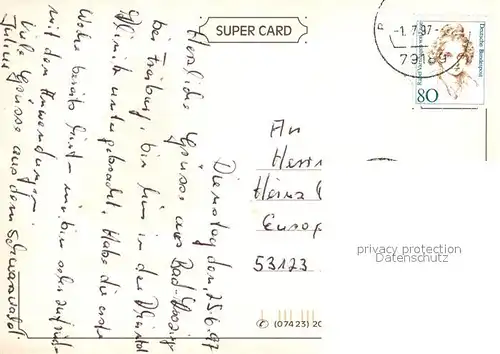 SUPER CARD
-1. 7. 97.-
79189
Deutsche Bundespost
80
Dienstag den, 25.6.97
Herzliche Grüsse aus Bad-Krozingen
bei Freiburg, bin hier in der Rheintal
Klinik untergebracht. Habe die erste
Woche bereits hinter mir, bin sehr zufrieden
mit den Anwendungen.
Viele Grüsse aus dem Schwarzwald.
An
Herrn
Heinz
Europ
53123
privacy protection
Datenschutz
© (07423) 20